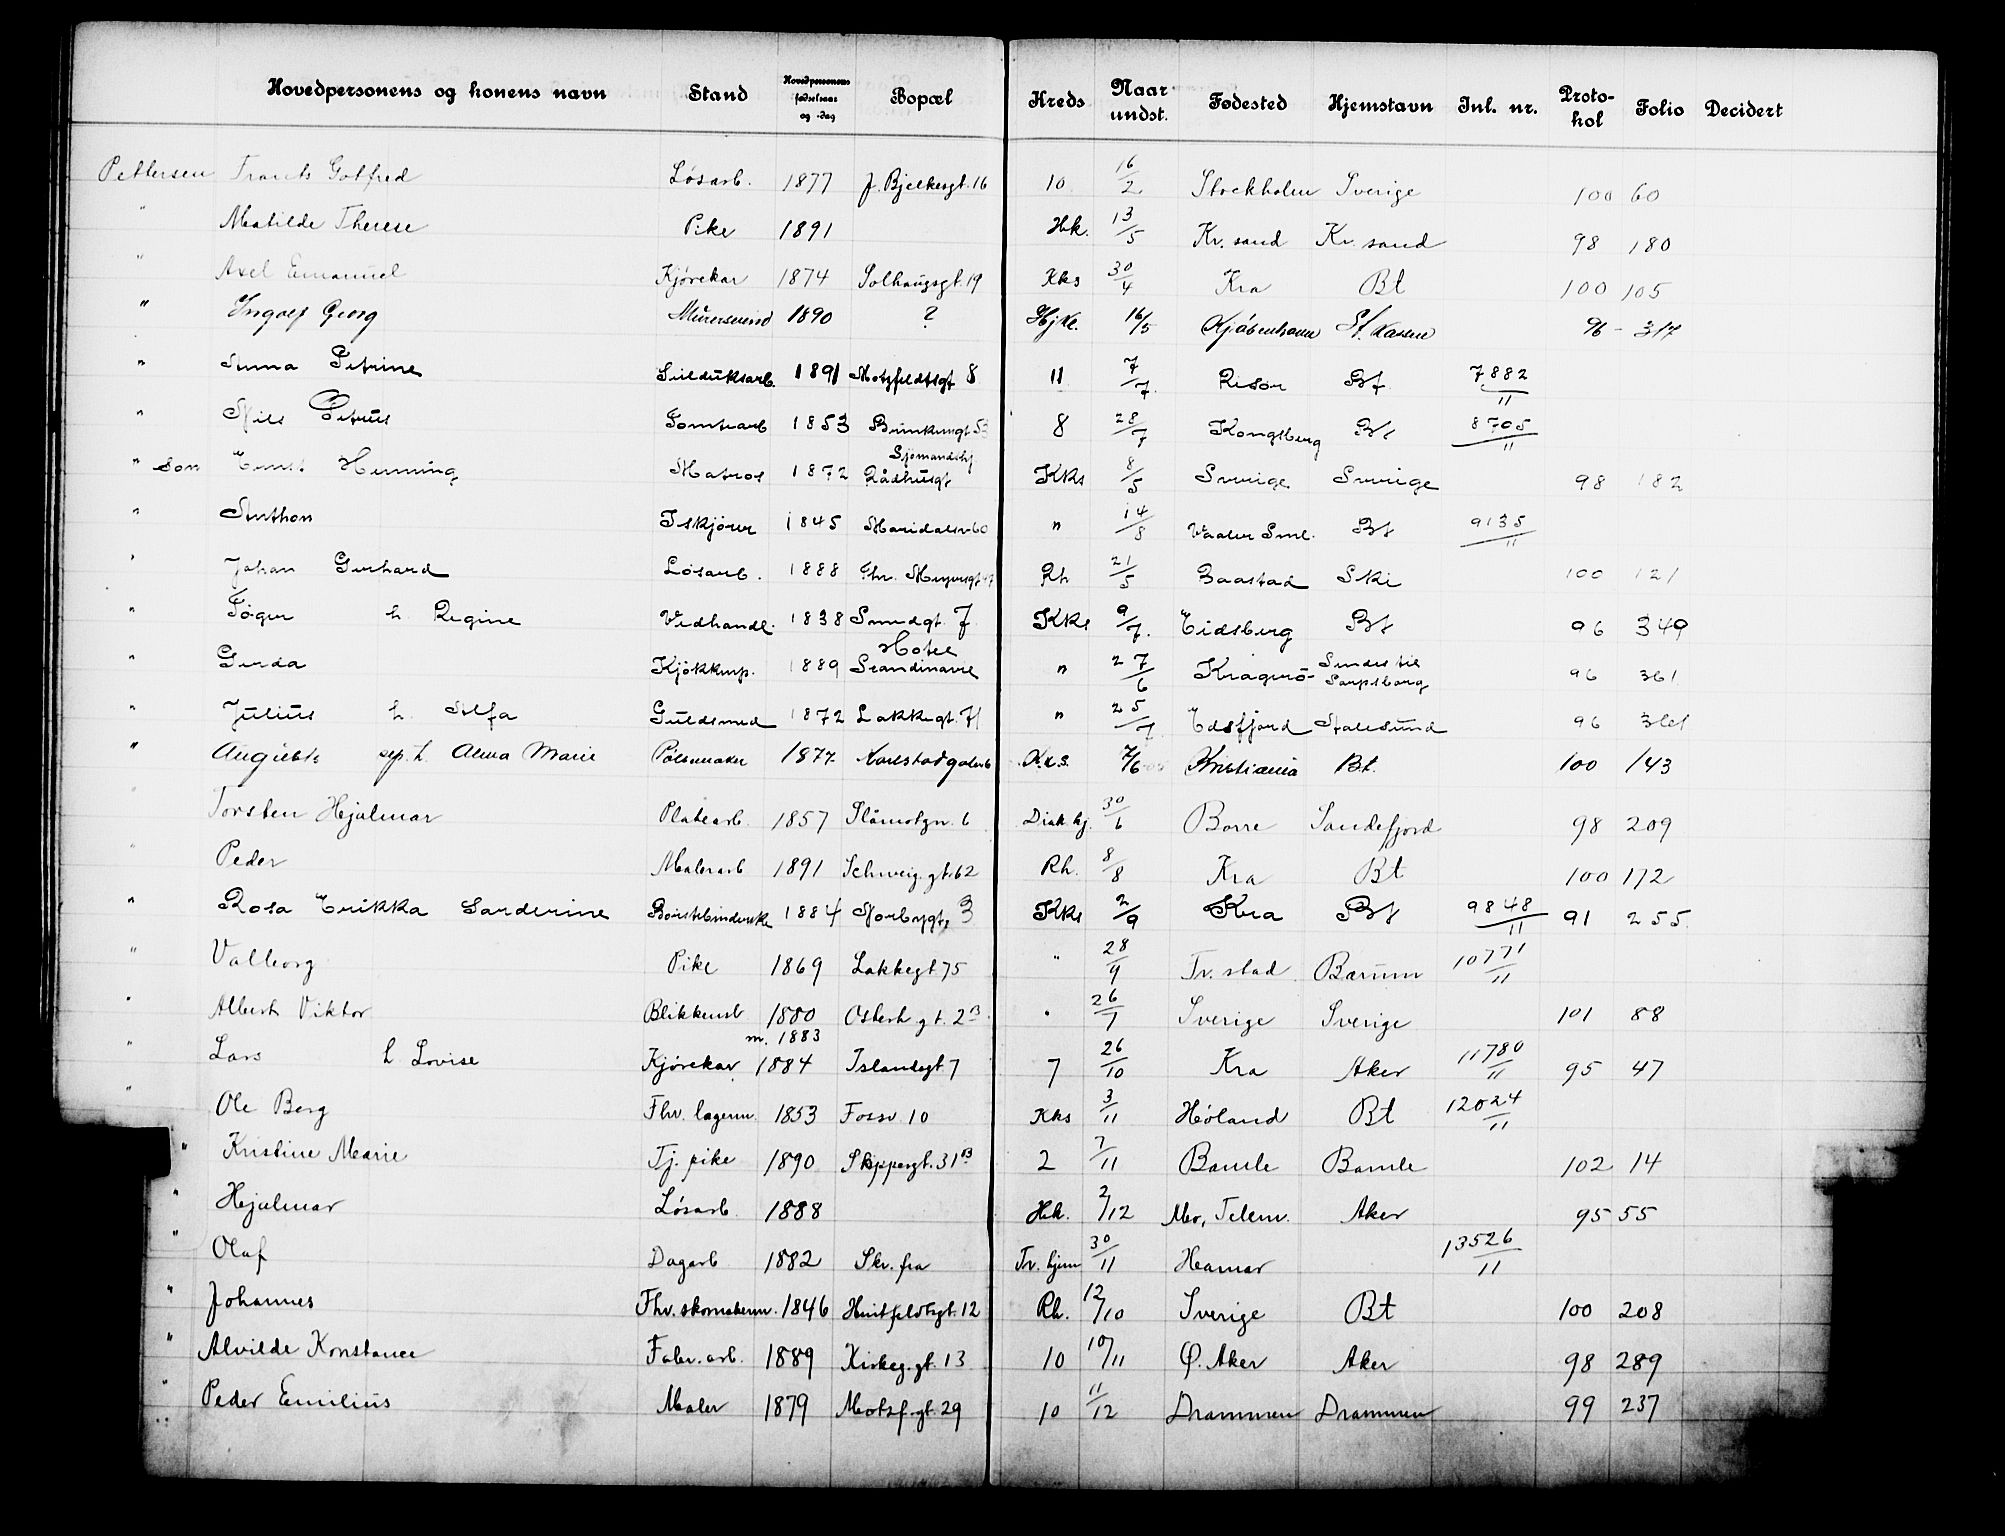 Hovedpersonens og konens navn Stand Hovedpersonens fødselsaar og -dag Bopæl Kreds Naar undst. Fødested Hjemstavn Inl. nr. Protokol Folio Decidert
Pettersen Frants Gotfred Løsarb. 1877 J. Bjelkesgt. 16 10 16/2 Stockholm Sverige 100 60
" Matilde Therese Pike 1891 Hk. 13/5 Kr. sand Kr. sand 98 180
" Axel Emanuel Kjørekar 1874 Solhaugsgt. 19 Kks 30/4 Kra Bt 100 105
" Ingolf Georg Murersvend 1890 ? Hjkl. 16/5 Kjøbenhavn St. kassen 96 - 317
" Anna Petrine 1891 Motzfeldtsgt 8 11 7/7. Risør Bt 7882/11
" Nils Petrus Tomtearb 1853 53 8 28/7 Kongsberg Bt 8705/11
" son Ernst Henning Matros 1872 Sjømandshj. Rådhusgt Kks 8/5 Sverige Sverige 98 182
" Anthon Iskjører 1845 Maridalsv 60 " 14/8 Vaaler Sml. Bt 9135/11
" Johan Gerhard Løsarb. 1888 Chr. Meyersgt 47 Rh 21/5 Baastad Ski 100 121
" h. Regine Vedhandl. 1838 Smedgt. 7. Kks 9/7. Eidsberg Bt 96 349
" Gerda Kjøkkenp. 1889 Hotel Scandinavie " 27/6 Kragerø Sendes til Sarpsborg 96 361
" Julius h. Alfa Guldsmed 1872 Lakkegt. 71 " 25/7 Edsfjord Aalesund 96
" August sep. h. Alma Marie Pølsemaker 1877 Karlstadgaten 6 K.k.s. 7/6 Kristiania Bt. 100 143
Torsten Hjalmar Platearb. 1857 Slåmotgn. 6 Diak. hj. 30/6 Borre Sandefjord 98 209
" Peder Malerarb 1891 Schweig. gt. 62 Rh. 8/8 Kra Bt 100 172
" Rosa Erikka Sarderine Børstebinderske 1884 Norbygt, 3 Kks 2/9 Kra Bt 9848/11 91 255
" Valborg Pike 1869 Lakkegt 75 " 28/9 Fr. stad Bærum 10771/11
" Albert Viktor Blikkensl 1880 Osterh gt. 2 B " 26/7 Sverige Sverige 101 88
" Lars h Lovise Kjørekar m. 1883 1884 Islandsgt 7 7 26/10 Kra Aker 11780/11 95 47
" Ole Berg Fhv. lagerm. 1853 Fossv. 10 Kks 3/11 Høland Bt 12024/11
" Kristine Marie Tj. pike 1890 Skippergt. 31 B 2 7/11 Bamle Bamle 102 14
" Hjalmar Løsarb. 1888 Hk. 2/12 Telem. Aker 95 55
" Olaf Dagarb 1882 Skr. fra Fr. hjem 30/11 Hamar 13526/11
" Johannes Fhv. skomakerm. 1846 Huitfeldtsgt. 12 Rh. 12/10 Sverige Bt 100 208
" Alvilde Konstance Fabr. arb. 1889 Kirkeg. gt. 13 10 10/11 Ø. Aker Aker 98 289
" Peder Emilius Maler 1879 Motzf. gt. 29 10 11/12 Drammen Drammen 99 237